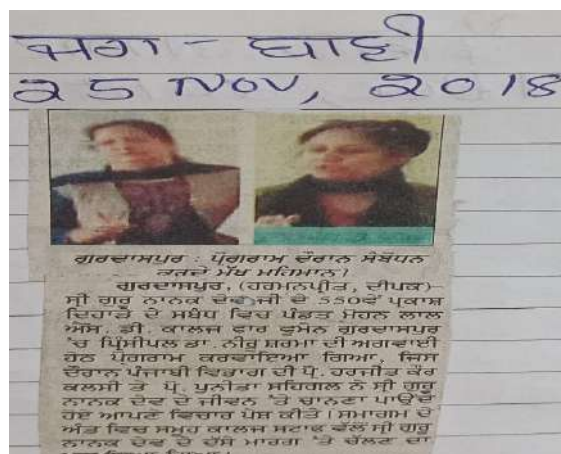 ਜਗ - ਬਾਣੀ
25 Nov, 2018
ਗੁਰਦਾਸਪੁਰ : ਪ੍ਰੋਗਰਾਮ ਦੌਰਾਨ ਸੰਬੋਧਨ
ਕਰਦੇ ਮੁੱਖ ਮਹਿਮਾਨ।
ਗੁਰਦਾਸਪੁਰ, (ਹਰਮਨਪ੍ਰੀਤ, ਦੀਪਕ)-
ਸ੍ਰੀ ਗੁਰੂ ਨਾਨਕ ਦੇਵ ਜੀ ਦੇ 550ਵੇਂ ਪ੍ਰਕਾਸ਼
ਦਿਹਾੜੇ ਦੇ ਸਬੰਧ ਵਿਚ ਪੰਡਤ ਮੋਹਨ ਲਾਲ
ਐੱਸ. ਡੀ. ਕਾਲਜ ਫਾਰ ਵੂਮੈਨ ਗੁਰਦਾਸਪੁਰ
'ਚ ਪ੍ਰਿੰਸੀਪਲ ਡਾ. ਨੀਰੂ ਸ਼ਰਮਾ ਦੀ ਅਗਵਾਈ
ਹੇਠ ਪ੍ਰੋਗਰਾਮ ਕਰਵਾਇਆ ਗਿਆ, ਜਿਸ
ਦੌਰਾਨ ਪੰਜਾਬੀ ਵਿਭਾਗ ਦੀ ਪ੍ਰੋ. ਹਰਜੀਤ ਕੌਰ
ਕਲਸੀ ਤੇ ਪ੍ਰੋ. ਪੁਨੀਤਾ ਸਹਿਗਲ ਨੇ ਸ੍ਰੀ ਗੁਰੂ
ਨਾਨਕ ਦੇਵ ਦੇ ਜੀਵਨ 'ਤੇ ਚਾਨਣਾ ਪਾਉਂਦੇ
ਹੋਏ ਆਪਣੇ ਵਿਚਾਰ ਪੇਸ਼ ਕੀਤੇ। ਸਮਾਗਮ ਦੇ
ਅੰਤ ਵਿਚ ਸਮੂਹ ਕਾਲਜ ਸਟਾਫ ਵੱਲੋਂ ਸ੍ਰੀ ਗੁਰੂ
ਨਾਨਕ ਦੇਵ ਦੇ ਦੱਸੇ ਮਾਰਗ 'ਤੇ ਚੱਲਣ ਦਾ